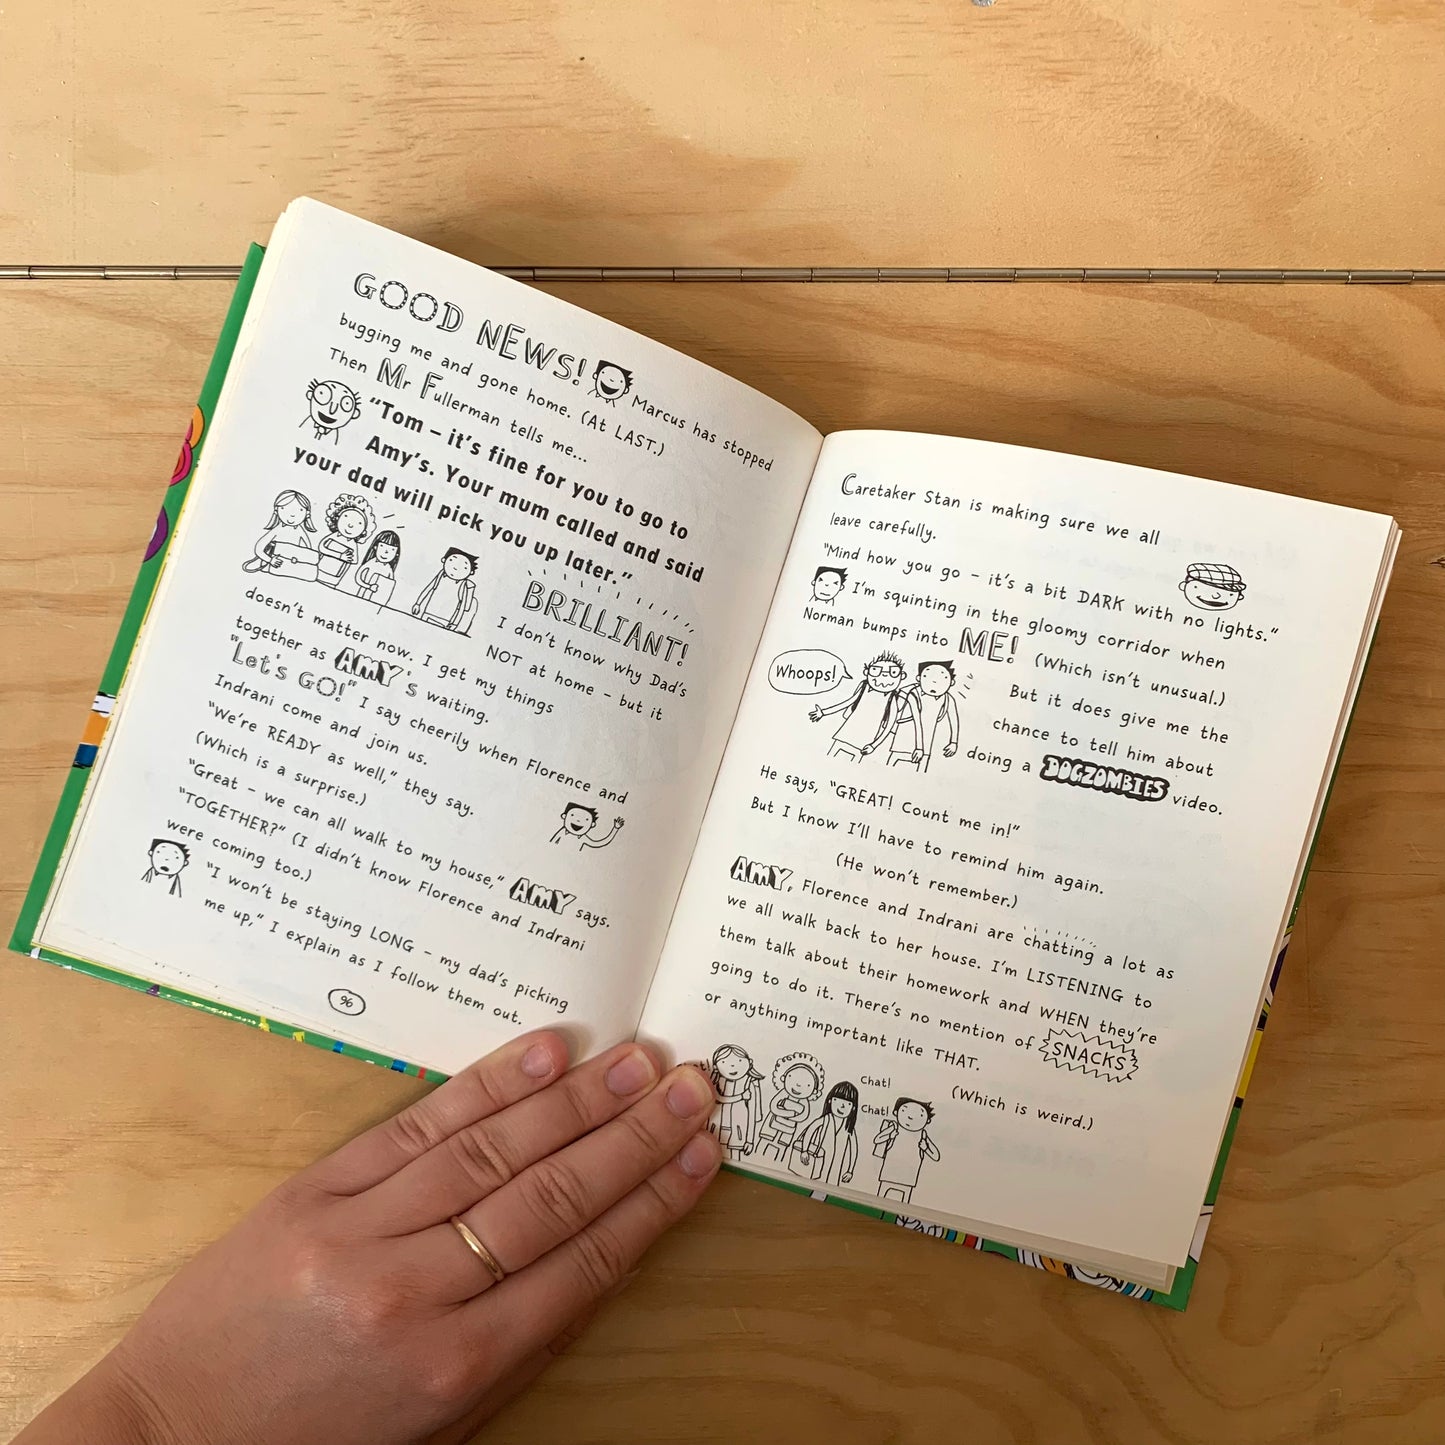 GOOD NEWS! Marcus has stopped
bugging me and gone home. (At LAST.)
Then Mr Fullerman tells me...
"Tom – it's fine for you to go to
Amy's. Your mum called and said
your dad will pick you up later."
BRILLIANT!
I don't know why Dad's
NOT at home – but it
doesn't matter now. I get my things
together as AMY's waiting.
"Let's GO!" I say cheerily when Florence and
Indrani come and join us.
"We're READY as well," they say.
(Which is a surprise.)
"Great – we can all walk to my house," AMY says.
"TOGETHER?" (I didn't know Florence and Indrani
were coming too.)
"I won't be staying LONG – my dad's picking
me up," I explain as I follow them out.
96
Caretaker Stan is making sure we all
leave carefully.
"Mind how you go – it's a bit DARK with no lights."
I'm squinting in the gloomy corridor when
Norman bumps into ME!
(Which isn't unusual.)
Whoops!
But it does give me the
chance to tell him about
doing a DOGZOMBIES video.
He says, "GREAT! Count me in!"
But I know I'll have to remind him again.
(He won't remember.)
AMY, Florence and Indrani are chatting a lot as
we all walk back to her house. I'm LISTENING to
them talk about their homework and WHEN they're
going to do it. There's no mention of SNACKS
or anything important like THAT.
(Which is weird.)
Chat!
Chat!